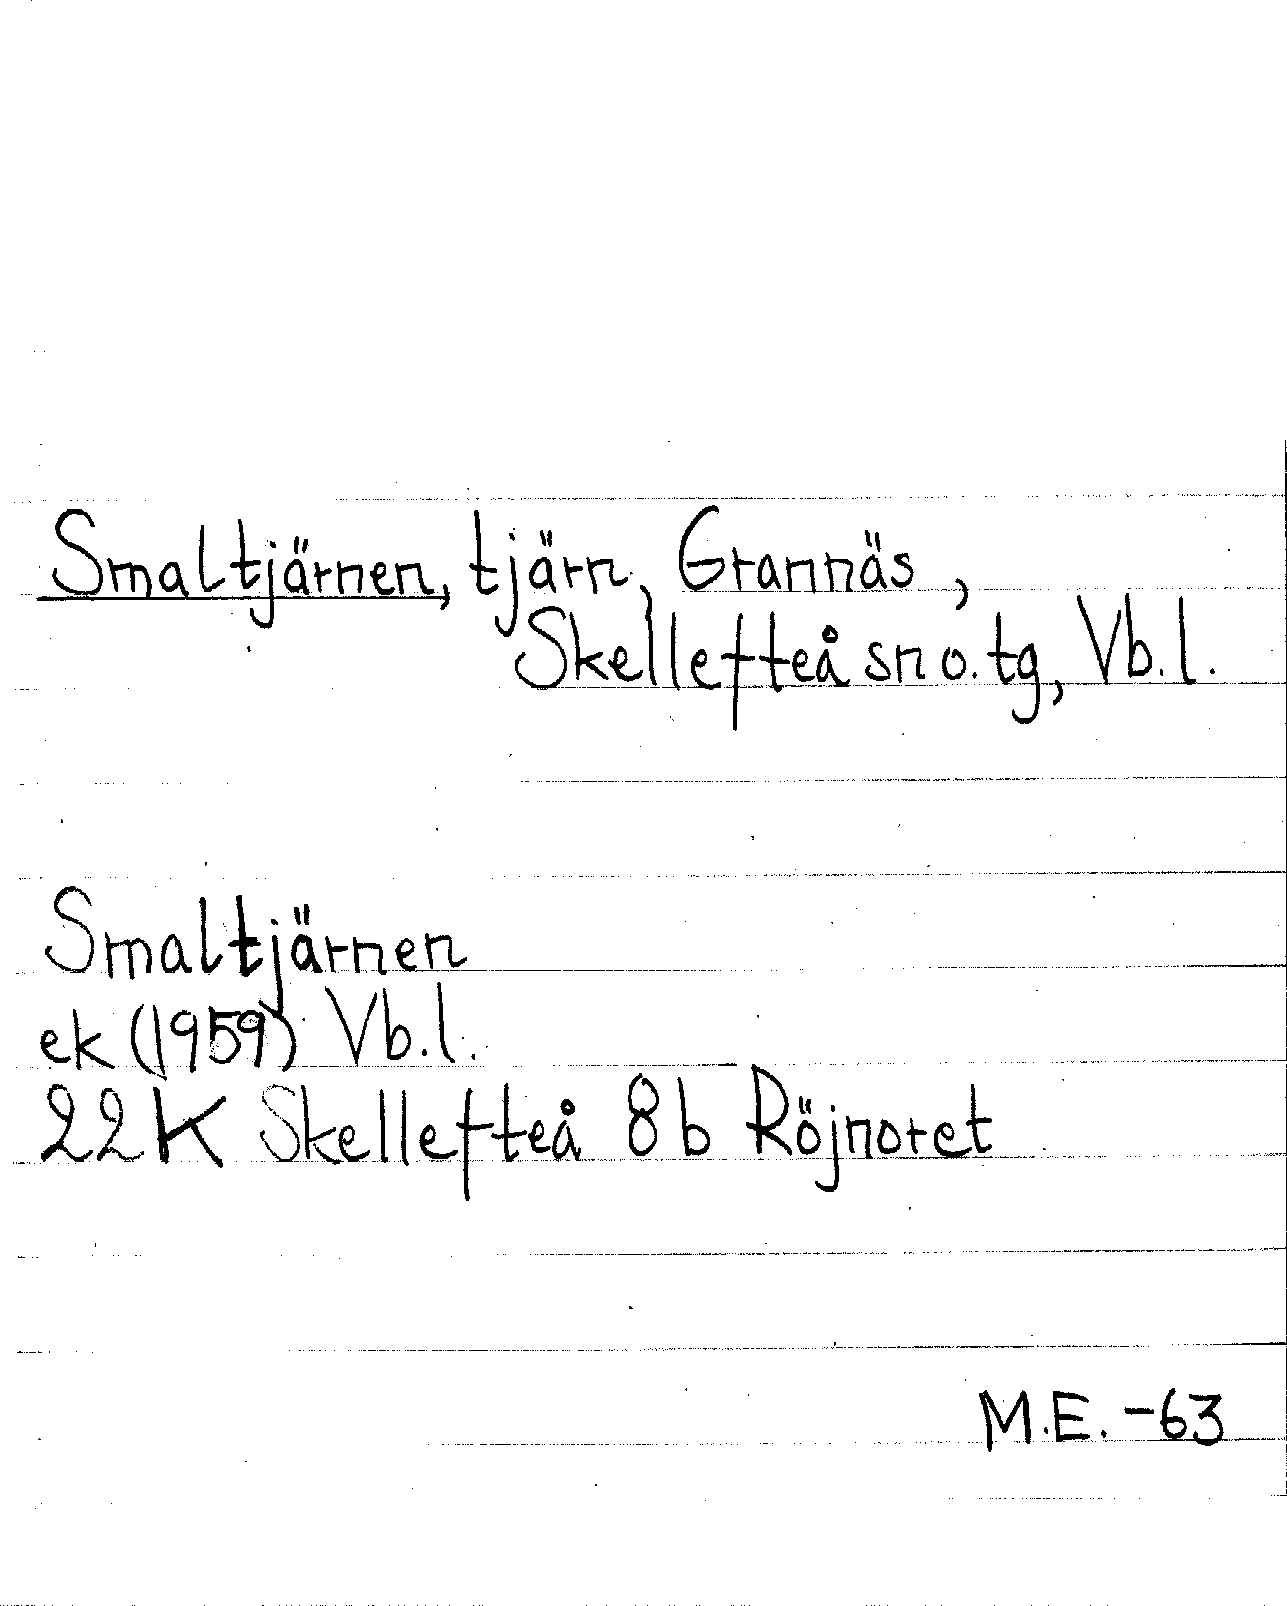 Smaltjärnen, tjärn, Grannäs,
Skellefteå sn o. tg, Vb. l.
Smaltjärnen
ek (1959) Vb. l.
22K Skellefteå 8b Röjnoret
M.E. -63